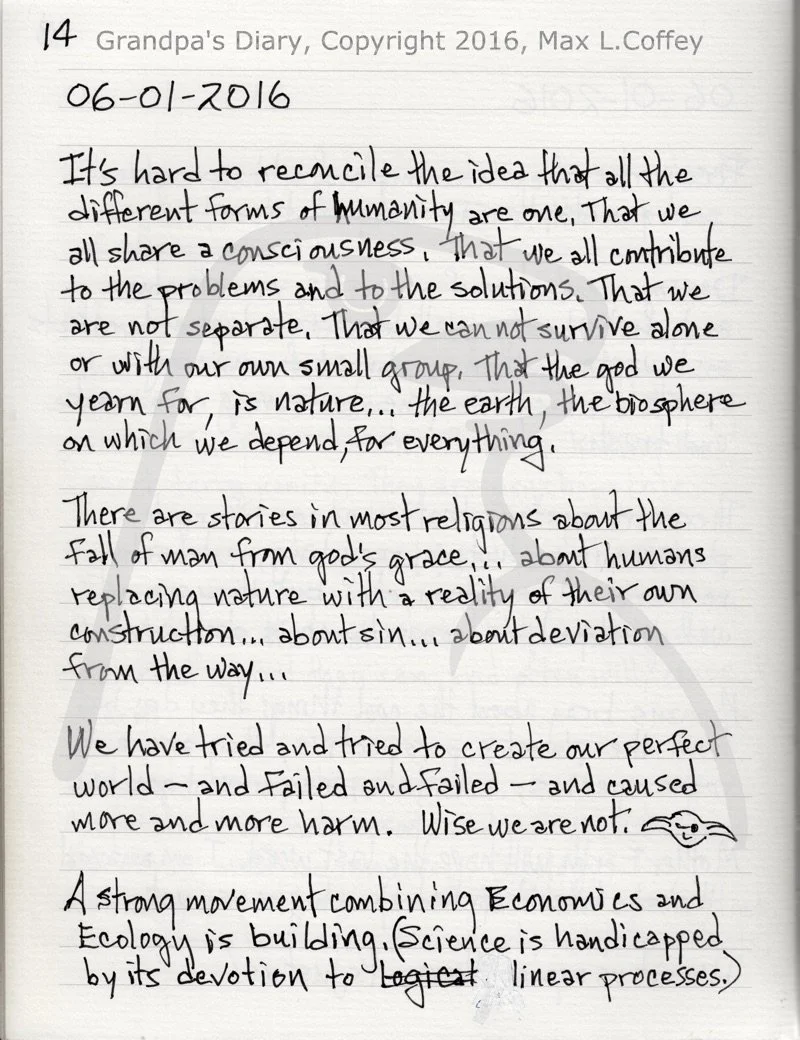 14 Grandpa's Diary, Copyright 2016, Max L.Coffey
06-01-2016
It's hard to reconcile the idea that all the
different forms of humanity are one. That we
all share a consciousness. That we all contribute
to the problems and to the solutions. That we
are not separate. That we can not survive alone
or with our own small group. That the god we
yearn for, is nature... the earth, the biosphere
on which we depend, for everything.
There are stories in most religions about the
fall of man from god's grace... about humans
replacing nature with a reality of their own
construction... about sin... about deviation
from the way...
We have tried and tried to create our perfect
world – and failed and failed – and caused
more and more harm. Wise we are not.
A strong movement combining Economics and
Ecology is building. (Science is handicapped
by its devotion to logical linear processes.)